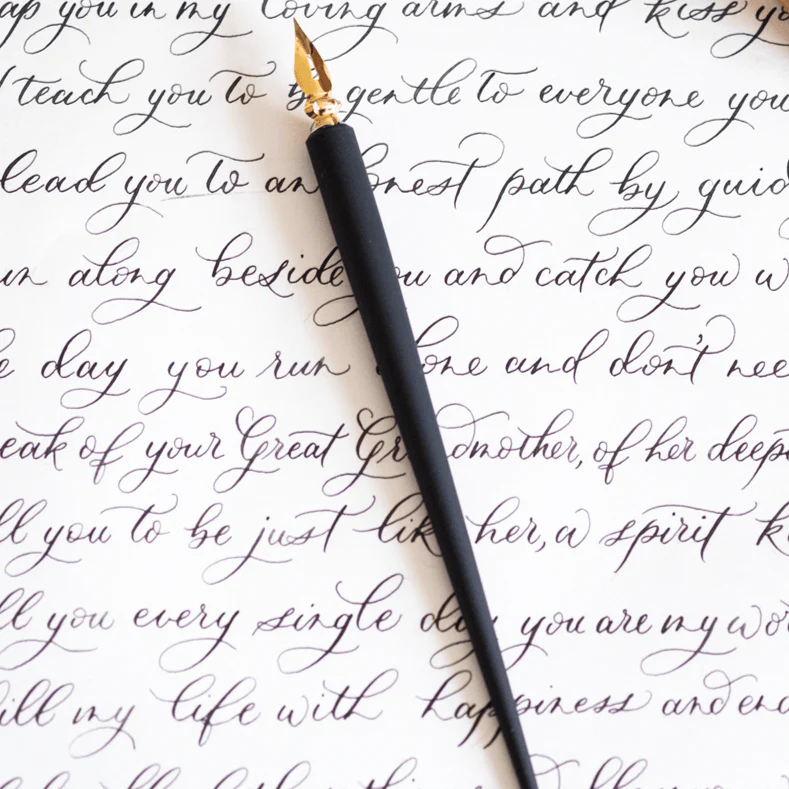 ap you in my loving arms and kiss yo
teach you to be gentle to everyone you
lead you to an honest path by guid
un along beside you and catch you w
e day you run alone and don't nee
eak of your Great Grandmother, of her deepe
ll you to be just like her, a spirit k
ll you every single day you are my wor
ill my life with happiness and end